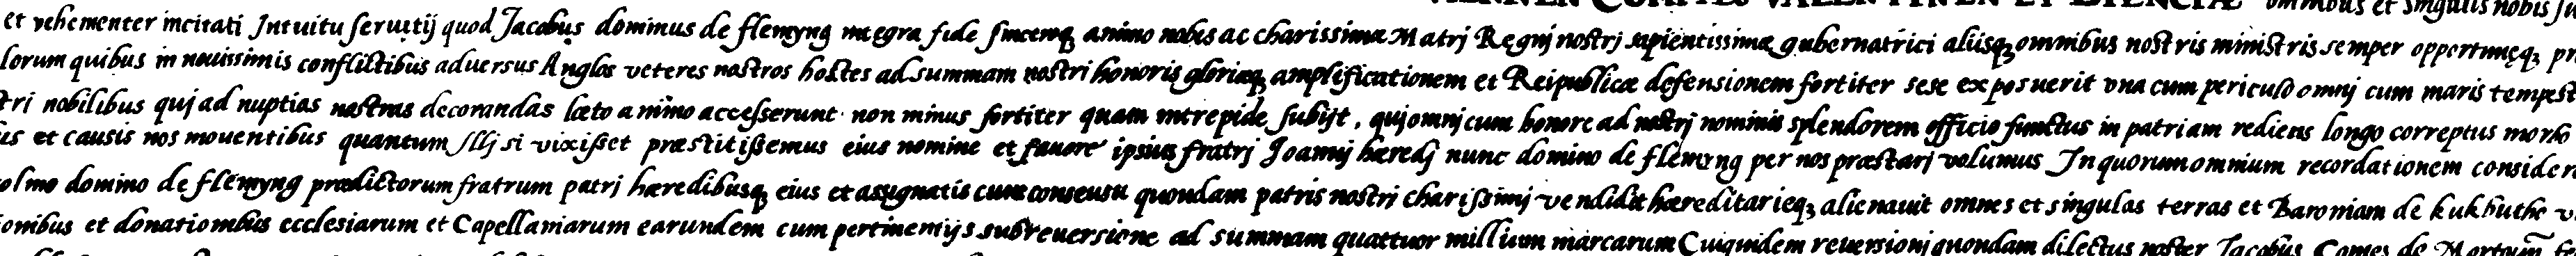 omnibus et singulis nobis
et vehementer incitati Intuitu seruitij quod Jacobus dominus de flemyng integra fide sinceroq animo nobis ac charissimæ Matrj Regnj nostrj sapientissimæ gubernatrici aliisq omnibus nostris ministris semper opportuneq
lorum quibus in nouissimis conflictibus aduersus Anglos veteres nostros hostes ad summam nostri honoris gloriæq amplificationem et Reipublicæ defensionem fortiter sese exposuerit vna cum periculo omnj cum maris tempest
tri nobilibus quj ad nuptias nostras decorandas læto animo accesserunt non minus fortiter quam intrepide subijt, quj omnj cum honore ad nostrj nominis splendorem officio functus in patriam rediens longo correptus morbo
is et causis nos mouentibus quantum Illj si vixisset præstitissemus eius nomine et fauore ipsius fratrj Joannj hæredj nunc domino de flemyng per nos præstarj volumus In quorum omnium recordationem consider
olmo domino de flemyng prædictorum fratrum patrj hæredibusq eius et assignatis cum consensu quondam patris nostrj charissimj vendidit hæreditarieq alienauit omnes et singulas terras et Baroniam de kukbuthe
onibus et donationibus ecclesiarum et Capellaniarum earundem cum pertinentijs sub reuersione ad summam quattuor millium marcarum Cuiquidem reuersionj quondam dilectus noster Jacobus Comes de Mortoun